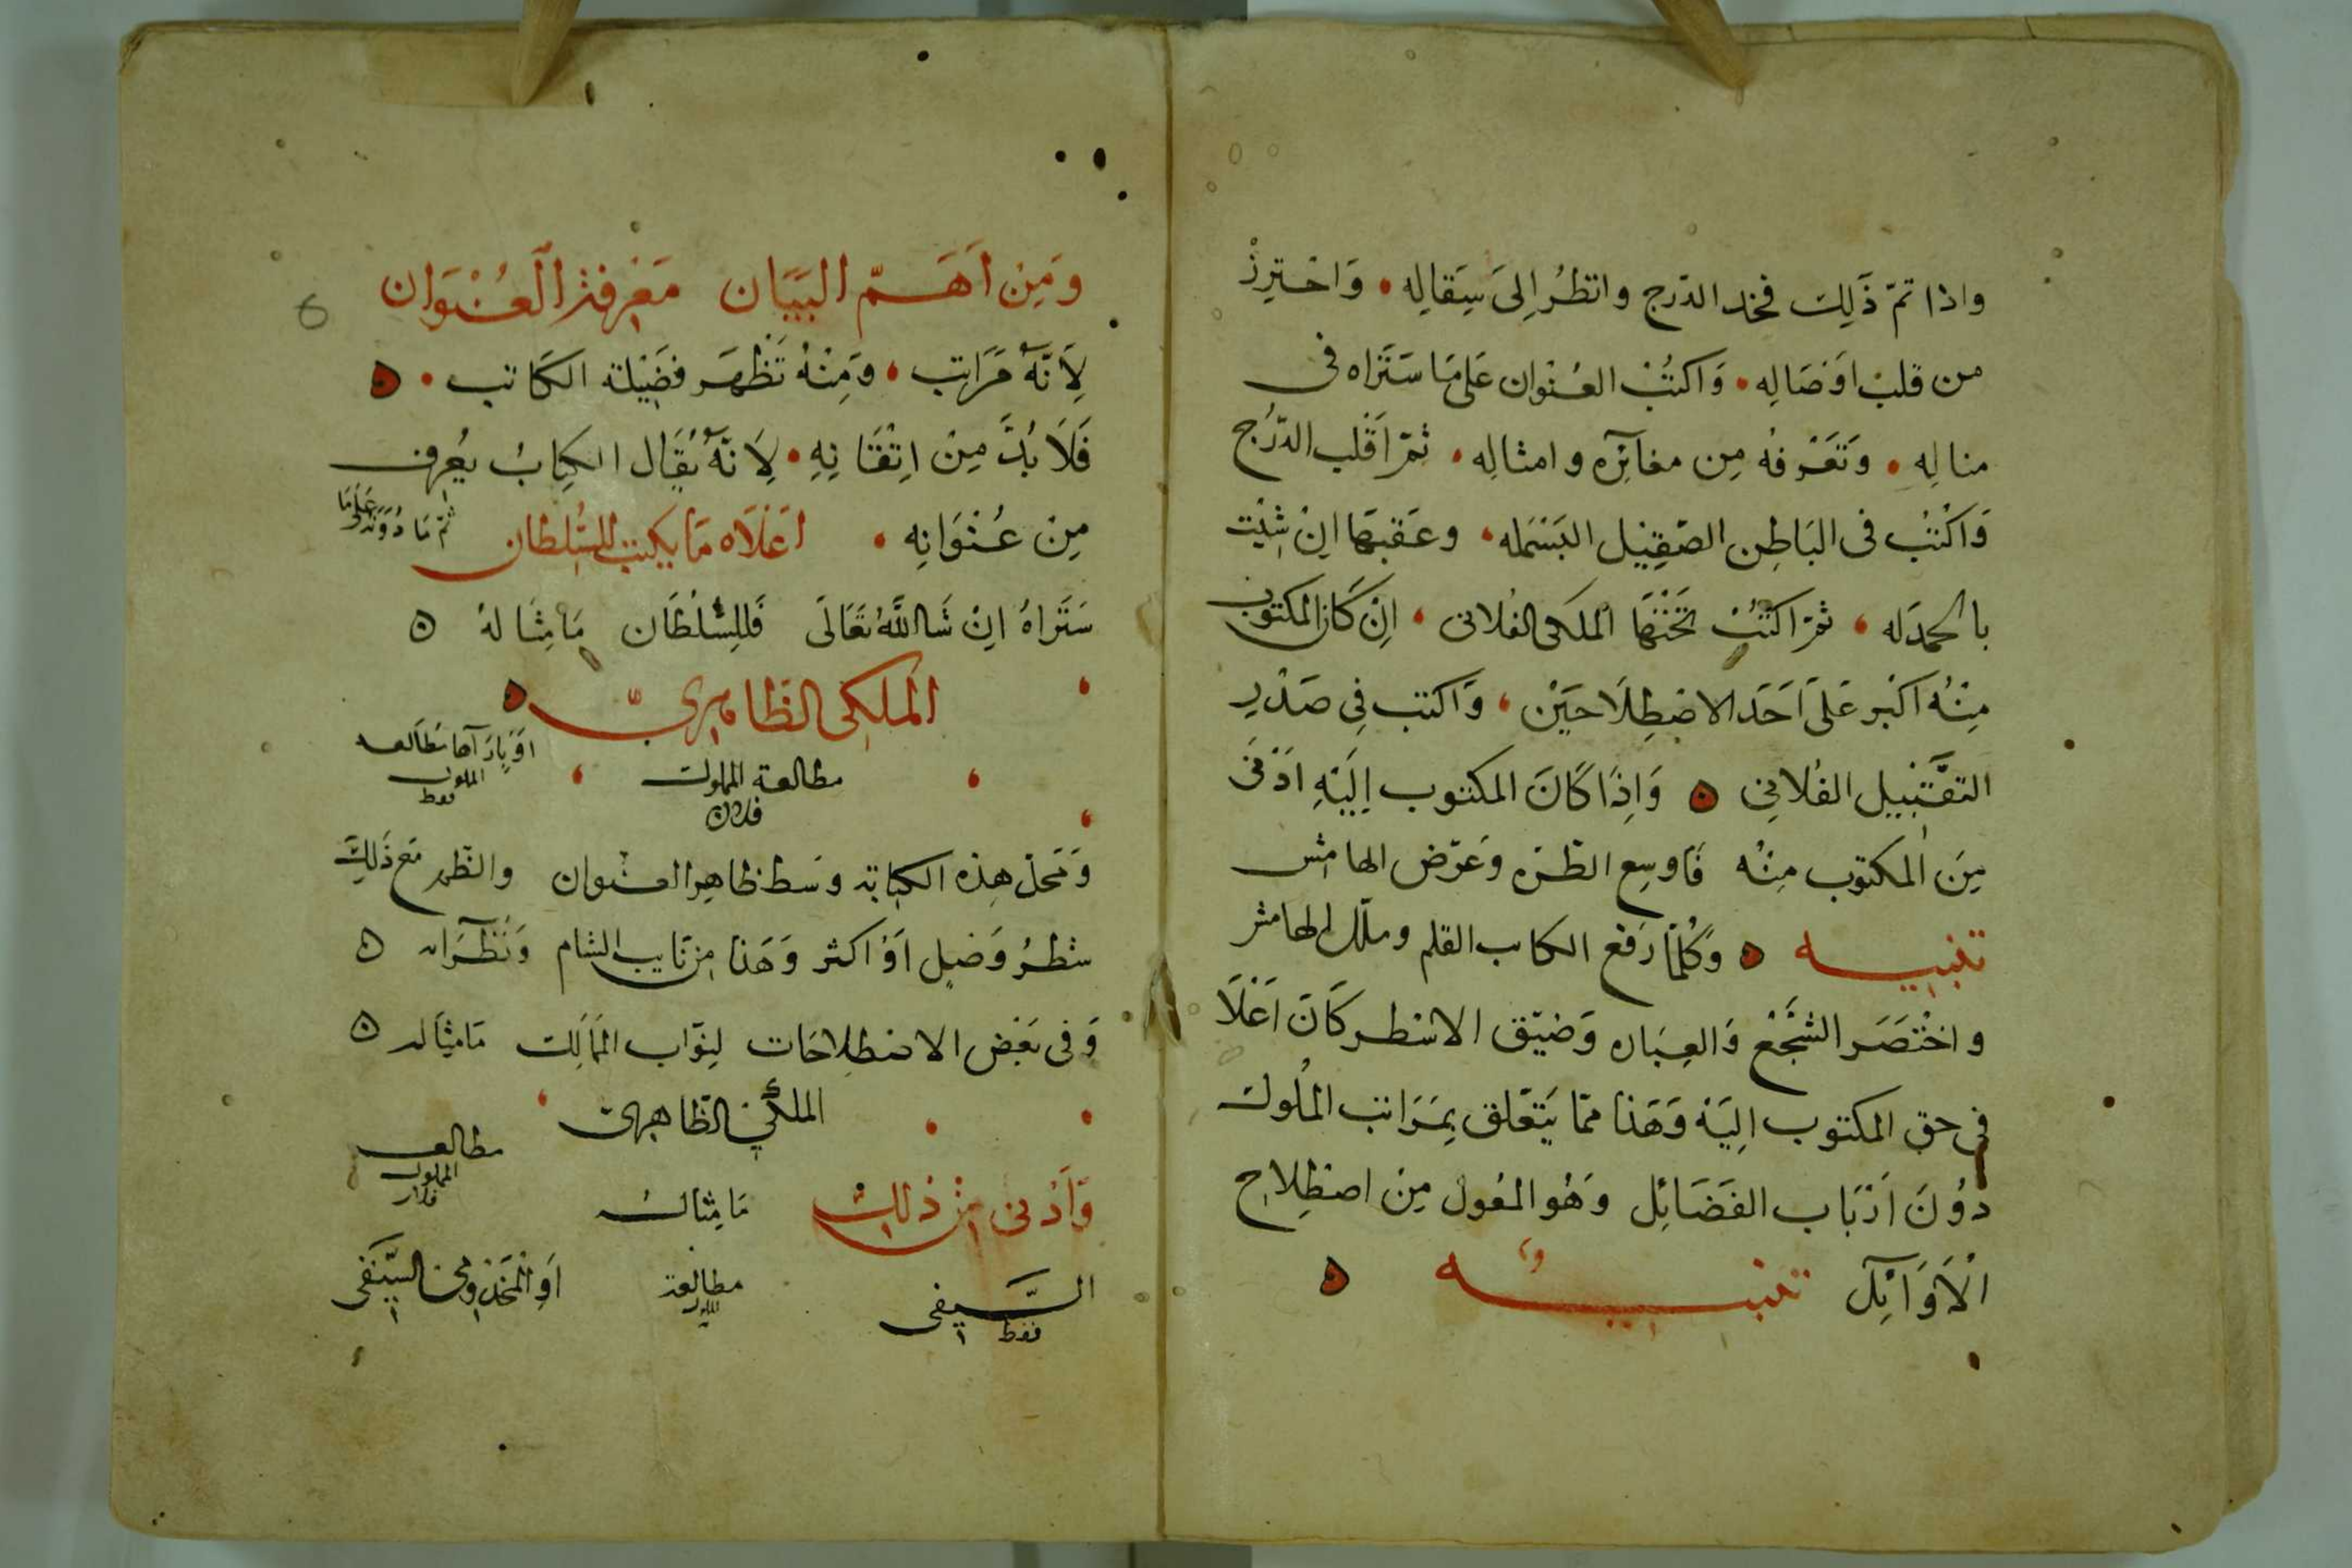 واذا تمّ ذَلِك فخذ الدّرج وانظُر اِلىَ سِقالِه • وَاحتِرِزْ
من قلب اوْصَالِه • وَاكتُبْ العُنْوان عَلى مَا سَتَراه فى
مثالِه • وَتَعْرفهُ مِن مغايَرِه وامثالِه • ثمّ اَقلب الدَّرْج
وَاكْتُبْ فى البَاطِن الصّقِيْل البَسْمَله • وعَقبهَا اِنْ شِئْت
بالحمدَله • ثمّ اكتُبْ تَحْتَهَا المَلكى الفُلانى • اِنْ كَان المكتوب
مِنْهُ اكبَر عَلىَ اَحَد الاصْطِلَاحَيْن • وَاكتب فِى صَدْرِ
التقْبَيْل الفُلانِى ۵ وَاِذَا كَانَ المكتوب اِلَيْهِ ادْنىَ
مِنَ المكتوب مِنْه فَاوسِع الطّرّه وَعَرّض الهامش
تنبيـــه ۵ وَكُلّمَا رَفع الكاتب القلم وملل الهامش
واخْتَصَر السَّجْعْ وَالعِبَاره وَضيّق الاسْطر كَانَ اَعْلَا
فى حق المكتوب اِلَيْه وَهَذا ممّا يَتَعّلق بِمَرَاتب المُلوك
دوُنَ اَرْبَاب الفَضَائِل وَهُو المعول مِنْ اصْطِلاح
الْاَوَائِل تنبيـــه ۵
وَمِنْ اَهَـمّ البَيَان مَعْرِفة العُنْوَان
لِاَنّهُ مَرَاتب • وَمِنْهُ تَظْهَر فضَيْلة الكَاتب • ۵
فَلَا بُدَّ مِنْ اِتْقَانِهِ • لِاَنّهُ يُقَال الكِتابُ يُعرف
مِنْ عُنْوَانِه • اَعْلَاه مَا يكتب للسُّلطان ثمّ مَا دُونَهُ عَلَى مَا
سَتَراهُ اِنْ شَا اللَّهُ تَعَالَى فَلِلسُّلْطَان مَا مِثَالهُ ۵
المَلكى الظاهرىّ ۵
مطالعة المملوك
فلان
اوْ يازَ آها مطالعه
المملوك
فقط
وَمَحلّ هِذه الكتابة وسَط ظاهِر العنوان والظهر مَع ذَلِكَ
شطرُ وَصْلٍ اَوْ اكثر وَهَذا مِن نَايب الشام وَنُظَرَائه ۵
وَفى بَعْض الاصْطلاحَات لِنوّاب المَمَالك مَا مِثَاله ۵
الملكى الظاهرى
مطالعه
المملوك
فلان
وَاَدْنى مِنْ ذلك مَا مِثالهُ
السَّـيفى
فقط
مطالعة
المملوك
اَوْ المَخْدُومى السَّيْفى
6